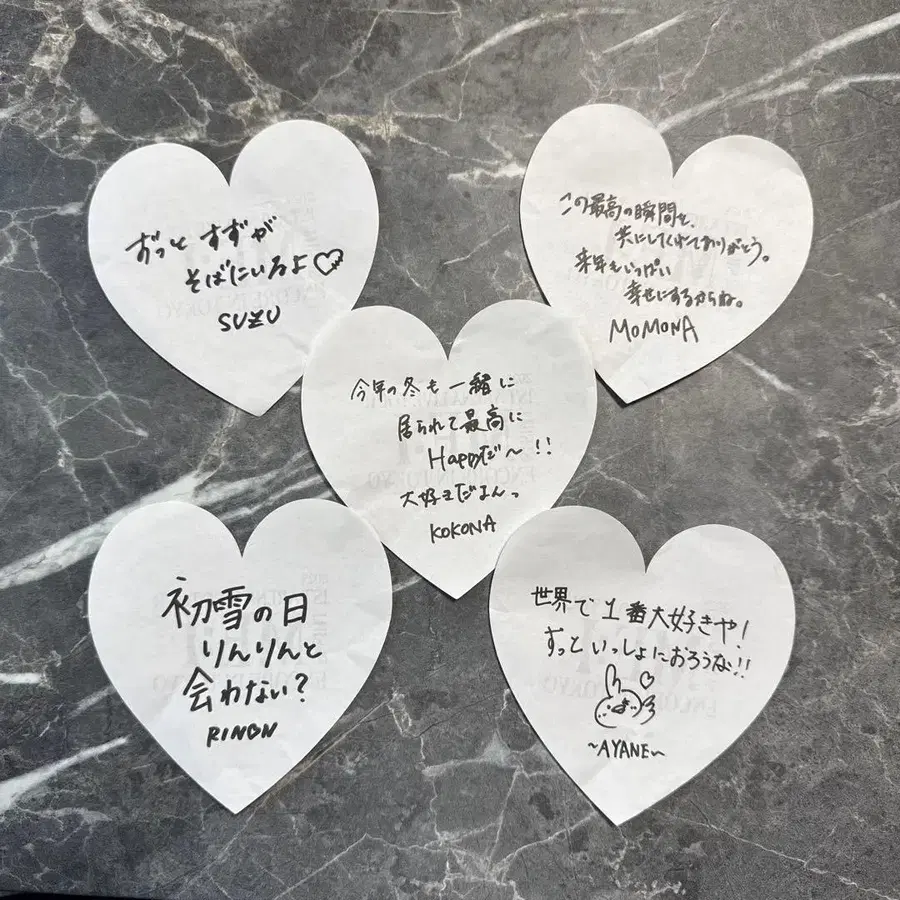 ずっと すずが
そばにいるよ♡
SUZU
この最高の瞬間を、
共にしてくれてありがとう。
来年もいっぱい
幸せにするからね。
MOMONA
今年の冬も一緒に
居られて最高に
Happyだ〜!!
大好きだよんっ
KOKONA
初雪の日
りんりんと
会わない?
RINON
世界で1番大好きや!
ずっといっしょにおろうな!!
~AYANE~